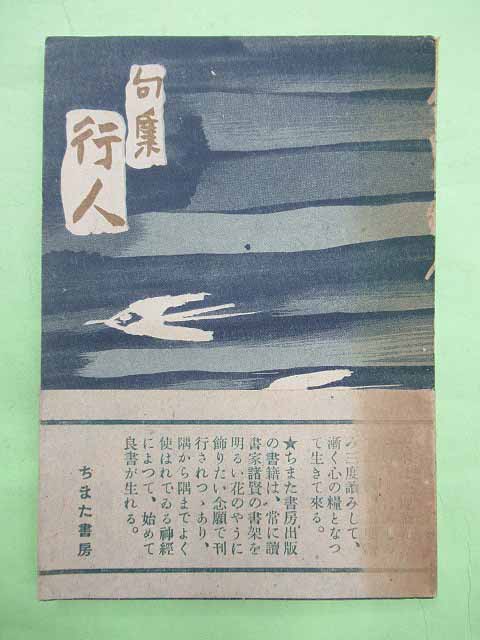 句集
行人
み三度讀みして、
漸く心の糧となつ
て生きて來る。
★ちまた書房出版
の書籍は、常に讀
書家諸賢の書架を
明るい花のやうに
飾りたい念願で刊
行されつゝあり、
隅から隅までよく
使はれてゐる神經
によつて、始めて
良書が生れる。
ちまた書房